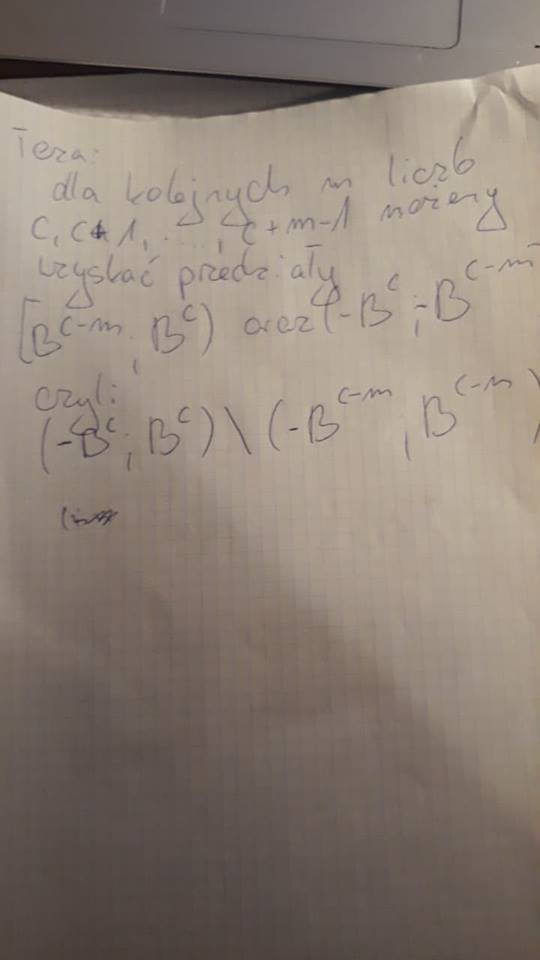 Teza:
dla kolejnych m liczb
c, c+1, ..., c+m-1 możemy
uzyskać przedziały
[B^{c-m}; B^c) oraz (-B^c; -B^{c-m}
czyli:
(-B^c; B^c) \ (-B^{c-m}; B^{c-m})